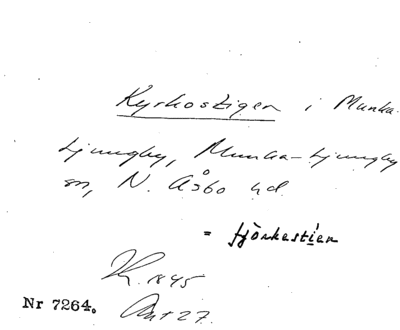 Kyrkostigen i Munka-
Ljungby, Munka-Ljungby
sn, N. Åsbo hd.
= tjörkestien
K. 1845
Nr 7264. Ant 27.